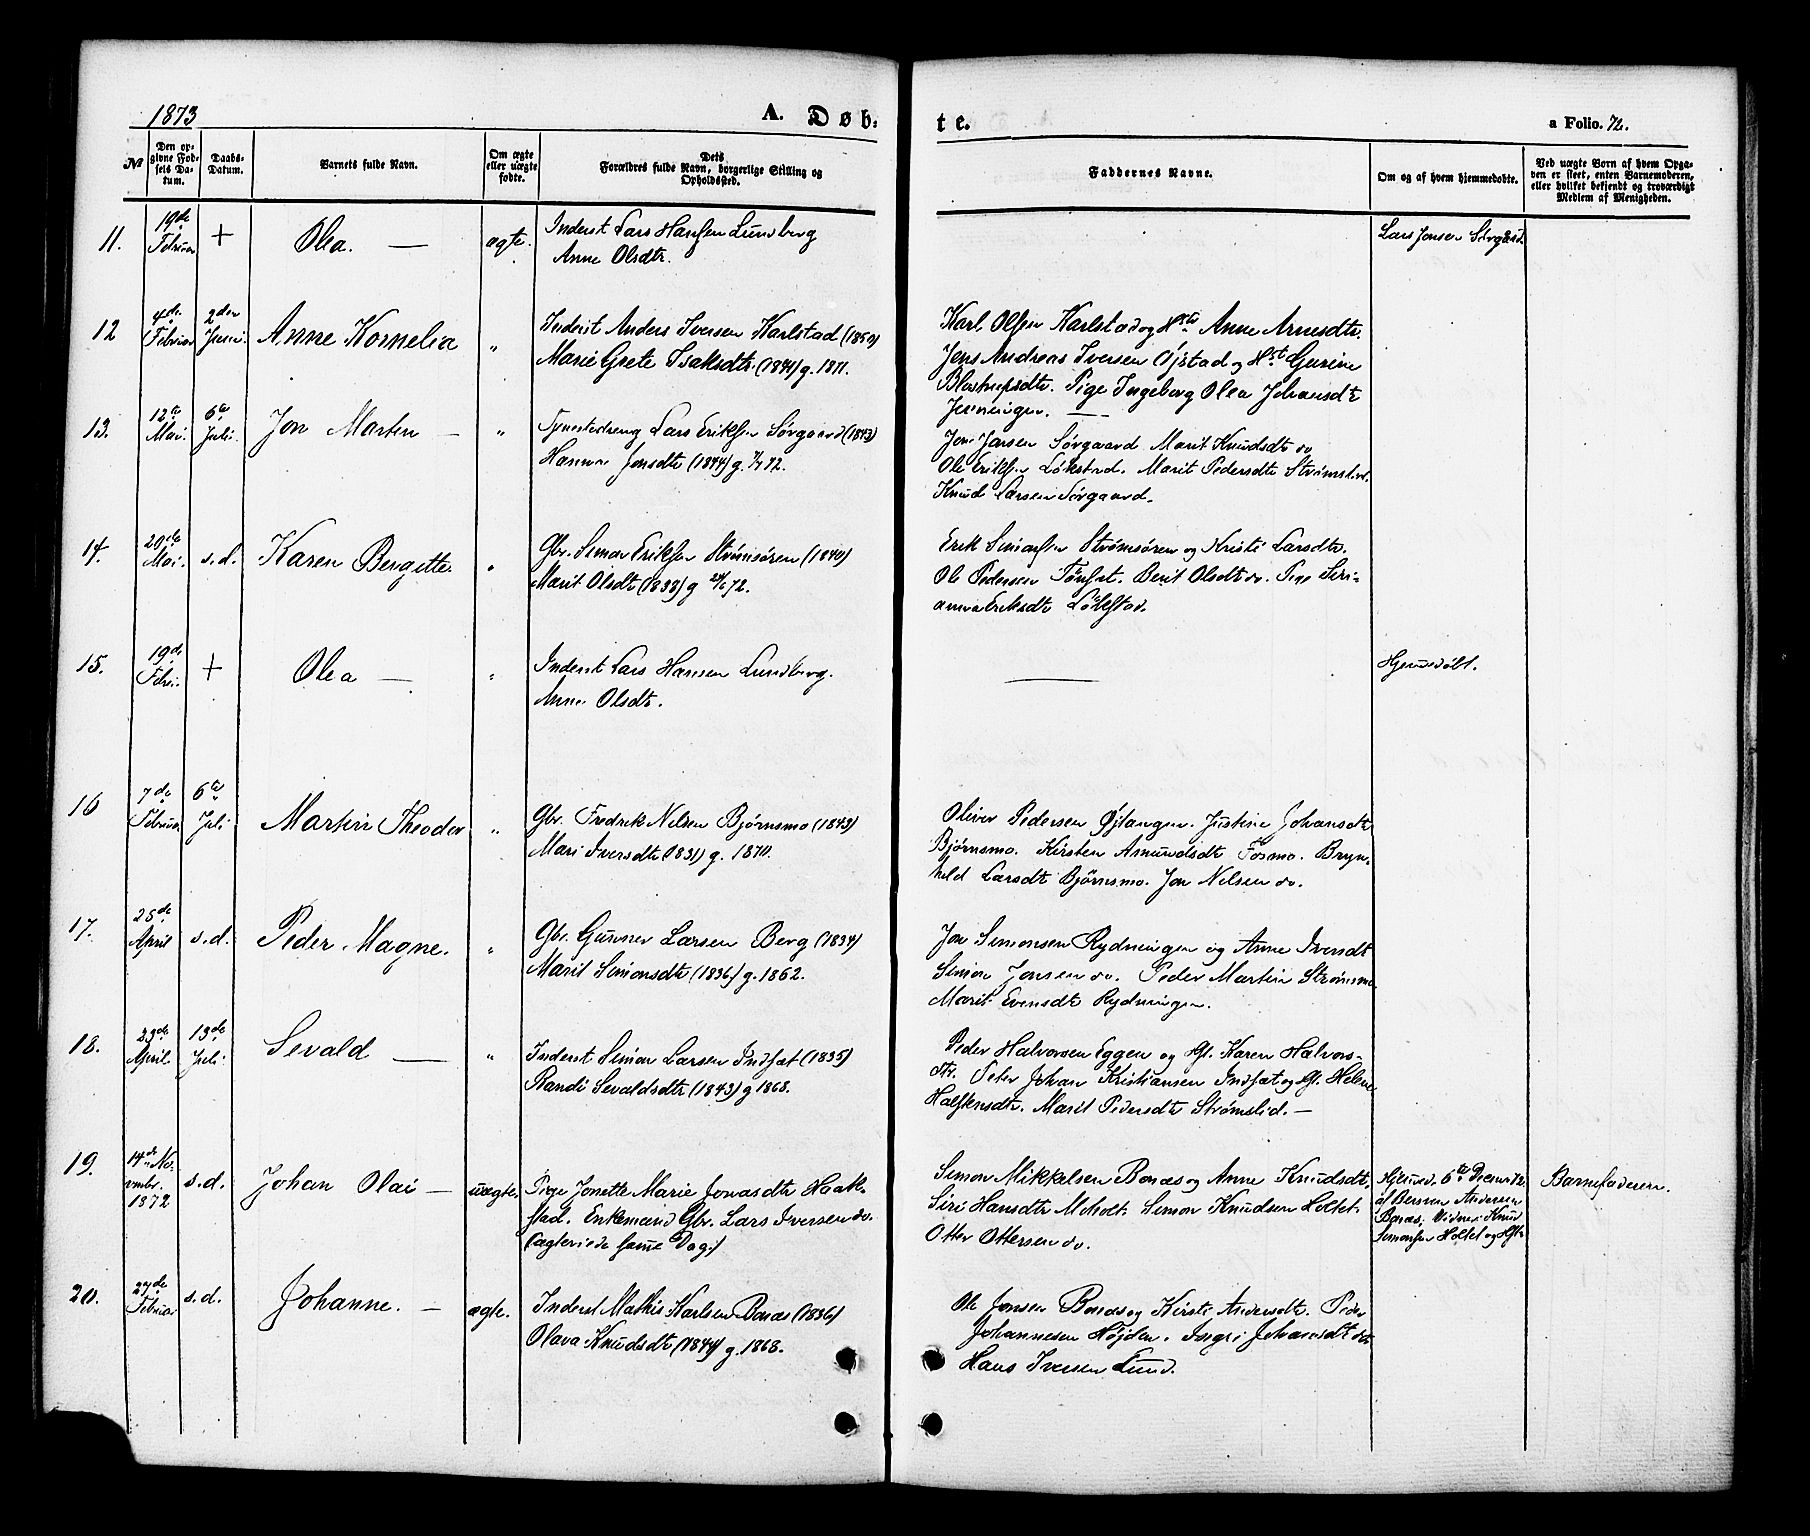 1873
A. Døb-
te.
a Folio. 72.
№
Den op-
givne Fød-
sels Da-
tum.
Daabs-
Datum.
Barnets fulde Navn.
Om ægte
eller uægte
fødte.
Dets
Forældres fulde Navn, borgerlige Stilling og
Opholdssted.
Faddernes Navne.
Om og af hvem hjemmedøbte.
Ved uægte Børn af hvem Opga-
ven er skeet, enten Barnemoderen,
eller hvilket bekjendt og troværdigt
Medlem af Menigheden.
11.
19de
Februar
+
Olea. —
ægte.
Inderst Lars Hansen Lundberg
Anne Olsdtr.
Lars Jonsen Sørgaard
12
4de
Februar
2den
Juni.
Anne Kornelia
"
Inderst Anders Iversen Karlstad (1850)
Marie Grete Isaksdtr. (1841) g. 1871.
Karl Olsen Karlstad og Hst. Anne Arnesdtr.
Jens Andreas Iversen Øjstad og Hst Gurine
Blostrupsdtr. Pige Ingeborg Olea Johansdtr
13.
12te
Mai.
6te
Juli.
Jon Martin —
"
Lars Eriksen Sørgaard (1843)
Hanna Jonsdtr (1844) g. 72.
Jon Jonsen Sørgaard Marit Knudsdtr do
Ole Eriksen Løkstad. Marit Pedersdtr Strømslid.
Knud Larsen Sørgaard.
14.
20de
Mai.
s.d.
Karen Bergitte.
"
Gbr. Simon Eriksen Strømsøren (1840)
Marit Olsdtr (1833) g 72.
Erik Simonsen Strømsøren og Kristi Larsdtr.
Ole Pedersen Tønset. Berit Olsdtr do. Pige Siri-
anna Eriksdtr Løkstad.
15.
19de
Febr.
+
Olea —
"
Inderst Lars Hansen Lundberg.
Anne Olsdtr.
—
Hjemmedøbt.
16
7de
Februar
6te
Juli
Martin Theodor
"
Gbr. Fredrik Nilsen Bjørnsmo (1843)
Mari Iversdtr (1831) g. 1870.
Oliver Pedersen Øjtangen. Justine Johansdtr
Bjørnsmo. Kirsten Amundsdtr Fosmo. Bryn-
hild Larsdtr Bjørnsmo. Jon Nilsen do.
17.
25de
April
s.d.
Peder Magne.
"
Gbr. Gunner Larsen Berg (1834)
Marit Simonsdtr (1836) g. 1862.
Jon Simonsen Rydningen og Anne Iversdtr
Simon Jonsen do. Peder Martin Strømsmo
Marit Evensdtr Rydningen.
18.
23de
April
13de
Juli
Sevald —
"
Inderst Simon Larsen Indset (1835)
Randi Sevaldsdtr (1843) g 1868.
Peder Halvorsen Eggen og Gl. Karen Halvors-
dtr. Peter Johan Kristiansen Indset og Gl. Helene
Halstensdtr. Marit Pedersdtr Strømslid. —
19.
14de No-
vmbr.
1872
s.d.
Johan Olai —
uægte.
Pige Jonette Marie Jonasdtr Haak-
stad. Enkemand Gbr. Lars Iversen do.
(ægteviede samme Dag)
Simon Mikkelsen Bonæs og Anne Knudsdtr.
Siri Hansdtr Moholt. Simon Knudsen Holtet.
Otter Ottersen do.
Hjemmed. 6te Decmb 72
af Berntin Andersen
Bonæs; Vidner: Knud
Simonsen Holtet og Hst.
Barnefaderen.
20.
27de
Februar
s.d.
Johanne. —
ægte.
Inderst Mathis Karlsen Bonæs (1836)
Olava Knudsdtr (1844) g. 1868.
Ole Jonsen Bonæs og Kirsti Andersdtr. Peder
Johannesen Højden. Ingri Johansdtr do
Hans Iversen Lund.